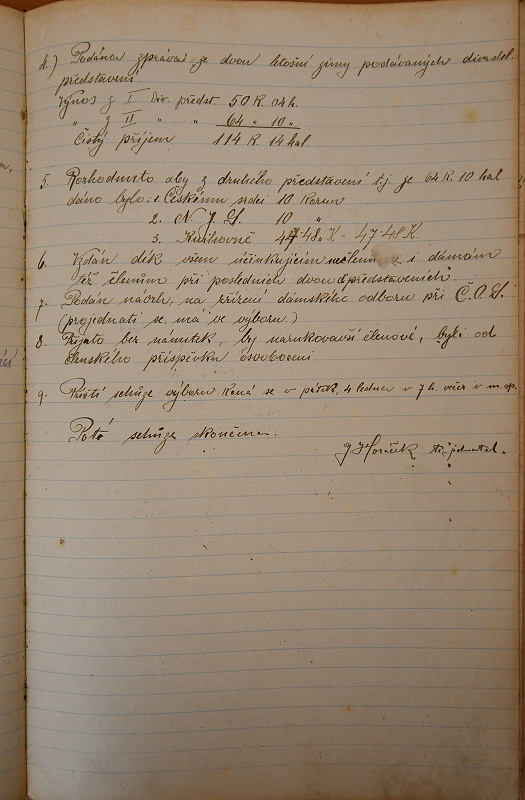 d.) Podána zpráva ze dvou letošní zimy podávaných divadel.
představení
Výnos z I div. předst. 50 K. 04 h.
" z II " " 64 " 10 "
Čistý příjem 114 K. 14 hal
5. Rozhodnuto aby z druhého představení t.j. ze 64 K. 10 hal
dáno bylo: 1. Českému srdci 10 Korun
2. N J S. 10 "
3. Knihovně 47·48 K.
6. Vzdán dík všem účinkujícím nečlenům i dámám
též členům při posledních dvou představeních
7. Podán návrh, na zřízení dámského odboru při Č.O.S.
(projednati se má ve výboru)
8. Přijato bez námitek, by narukovavší členové, byli od
členského příspěvku osvobozeni
9. Příští schůze výboru koná se v pátek, 4 ledna v 7 h. večer v m.op.
Poté schůze skončena.
J Horáček t.č. jednatel.